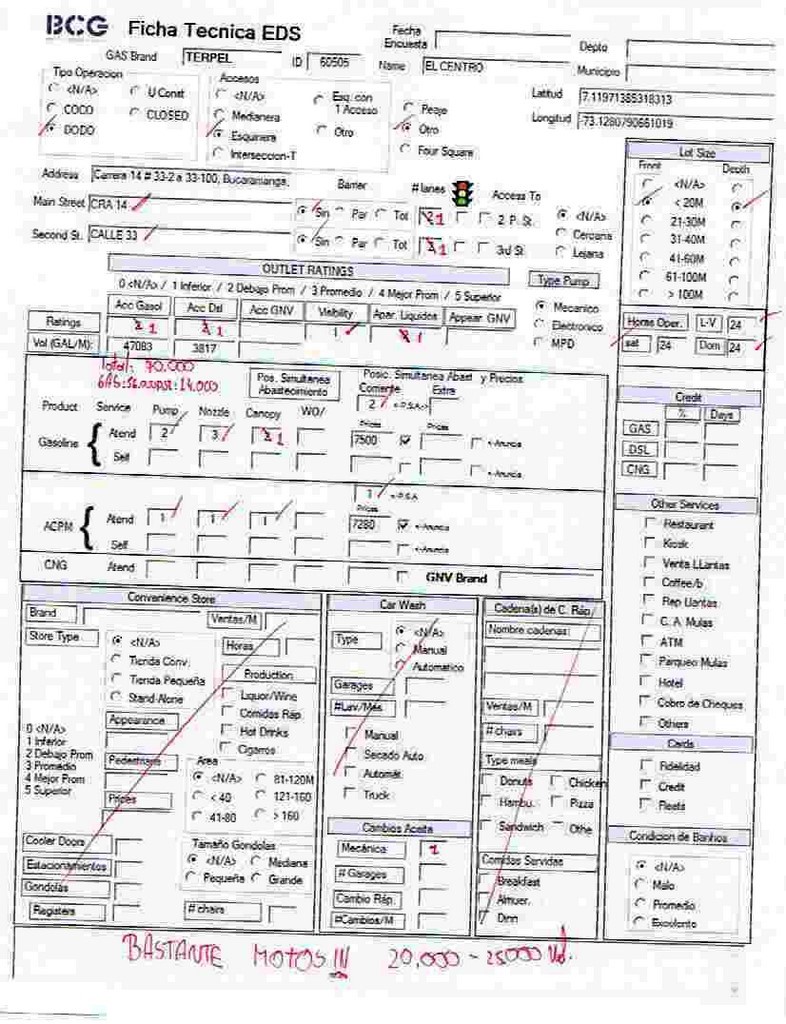 BCG Ficha Tecnica EDS
Fecha Encuesta
Depto
GAS Brand TERPEL ID 60505 Name EL CENTRO Municipio
Tipo Operacion
<N/A> U Const
COCO CLOSED
DODO
Accesos
<N/A> Esq. con 1 Acceso Peaje
Medianera Otro Otro
Esquinera Four Square
Interseccion-T
Latitud 7.11971365318313
Longitud -73.1280790661019
Address Carrera 14 # 33-2 a 33-100, Bucaramanga,
Barrier #lanes Access To
Main Street CRA 14 Sin Par Tot 1 2 P. St. <N/A>
Cercana
Second St. CALLE 33 Sin Par Tot 1 3rd St. Lejana
Lot Size
Front Depth
<N/A>
< 20M
21-30M
31-40M
41-60M
61-100M
> 100M
OUTLET RATINGS
0 <N/A> / 1 Inferior / 2 Debajo Prom / 3 Promedio / 4 Mejor Prom / 5 Superior
Acc Gasol Acc Dsl Acc GNV Visibility Apar. Liquidos Appear GNV
Ratings 1 1 1 1
Vol (GAL/M): 47083 3817
Type Pump
Mecanico
Electronico
MPD
Horas Oper. L-V 24
sat 24 Dom 24
Total: 70.000
Pos. Simultanea Abastecimiento
Posic. Simultanea Abast y Precios
Corriente Extra
2
Product Service Pump Nozzle Canopy WO/ Prices Prices
Gasoline Atend 2 3 1 7500 <-Anuncia <-Anuncia
Self <-Anuncia
1
Prices
ACPM Atend 1 1 1 7280 <-Anuncia
Self <-Anuncia
CNG Atend GNV Brand
Credit
% Days
GAS
DSL
CNG
Other Services
Restaurant
Kiosk
Venta LLantas
Coffee/b
Rep Llantas
C. A. Mulas
ATM
Parqueo Mulas
Hotel
Cobro de Cheques
Others
Cards
Fidelidad
Credit
Fleets
Condicion de Banhos
<N/A>
Malo
Promedio
Excelente
Convenience Store
Brand Ventas/M
Store Type
<N/A>
Tienda Conv.
Tienda Pequeña
Stand-Alone
Horas
Production
Liquor/Wine
Comidas Rap.
Hot Drinks
Cigarros
Appearance
Pedestrians
Prices
0 <N/A>
1 Inferior
2 Debajo Prom
3 Promedio
4 Mejor Prom
5 Superior
Area
<N/A> 81-120M
< 40 121-160
41-80 > 160
Tamaño Gondolas
<N/A> Mediana
Pequeña Grande
Cooler Doors
Estacionamientos
Gondolas
Registers
# chairs
Car Wash
Type
<N/A>
Manual
Automatico
Garages
#Lav/Mes
Manual
Secado Auto
Automát.
Truck
Cambios Aceite
Mecánica 1
# Garages
Cambio Ráp.
#Cambios/M
Cadena(s) de C. Ráp.
Nombre cadenas:
Ventas/M
# chairs
Type meals
Donuts Chicken
Hambu. Pizza
Sandwich Othe
Comidas Servidas
Breakfast
Almuer.
Dinn
BASTANTE MOTOS!!! 20,000 - 25000 Vol.